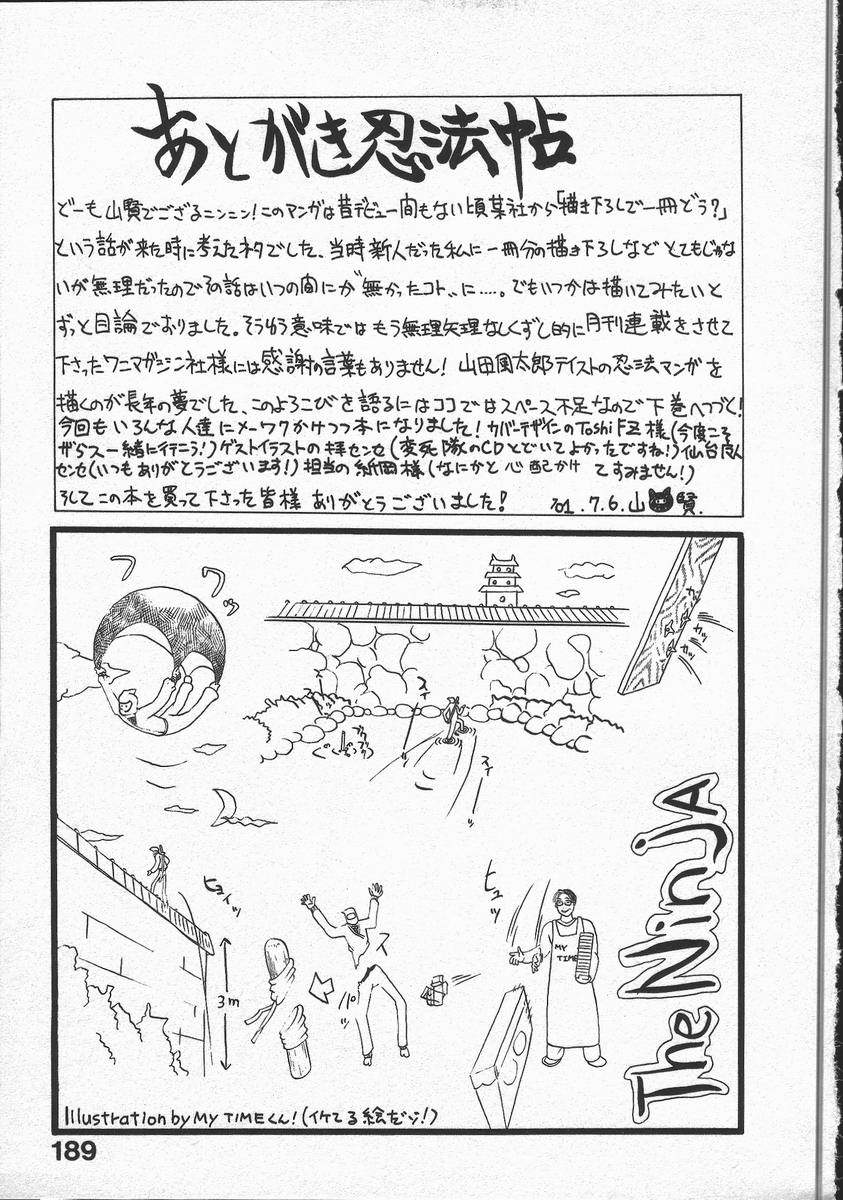 あとがき忍法帖
どーも山賢でござるニンニン!このマンガは昔デビュー間もない頃某社から「描き下ろしで一冊どう?」
という話が来た時に考えたネタでした、当時新人だった私に一冊分の描き下ろしなどとてもじゃな
いが無理だったのでその話はいつの間にか"無かったコト〟に……。でもいつかは描いてみたいと
ずっと目論でおりました。そうゆう意味ではもう無理矢理なしくずし的に月刊連載をさせて
下さったワニマガジン社様には感謝の言葉もありません! 山田風太郎テイストの忍法マンガを
描くのが長年の夢でした、このよろこびを語るにはココではスペース不足なので下巻へつづく!
今回もいろんな人達にメーワクかけつつ本になりました!カバーデザインのToshiFZ様(今度こそ
ザウス一緒に行こう!)ゲストイラストの拝センセ(変死隊のCDとどいてよかったですね!)仙台
センセ(いつもありがとうございます!)担当の紙岡様(なにかと心配かけてすみません!)
そしてこの本を買って下さった皆様ありがとうございました! '01.7.6.山賢.
フワッ
カッ
カッ
カッ
スイ
スイーッ
ヒョイッ
3m
ス
パ
ヒュッ
MY
TIME
The Ninja
Illustration by MY TIMEくん!(イケてる絵だゾ!)
189